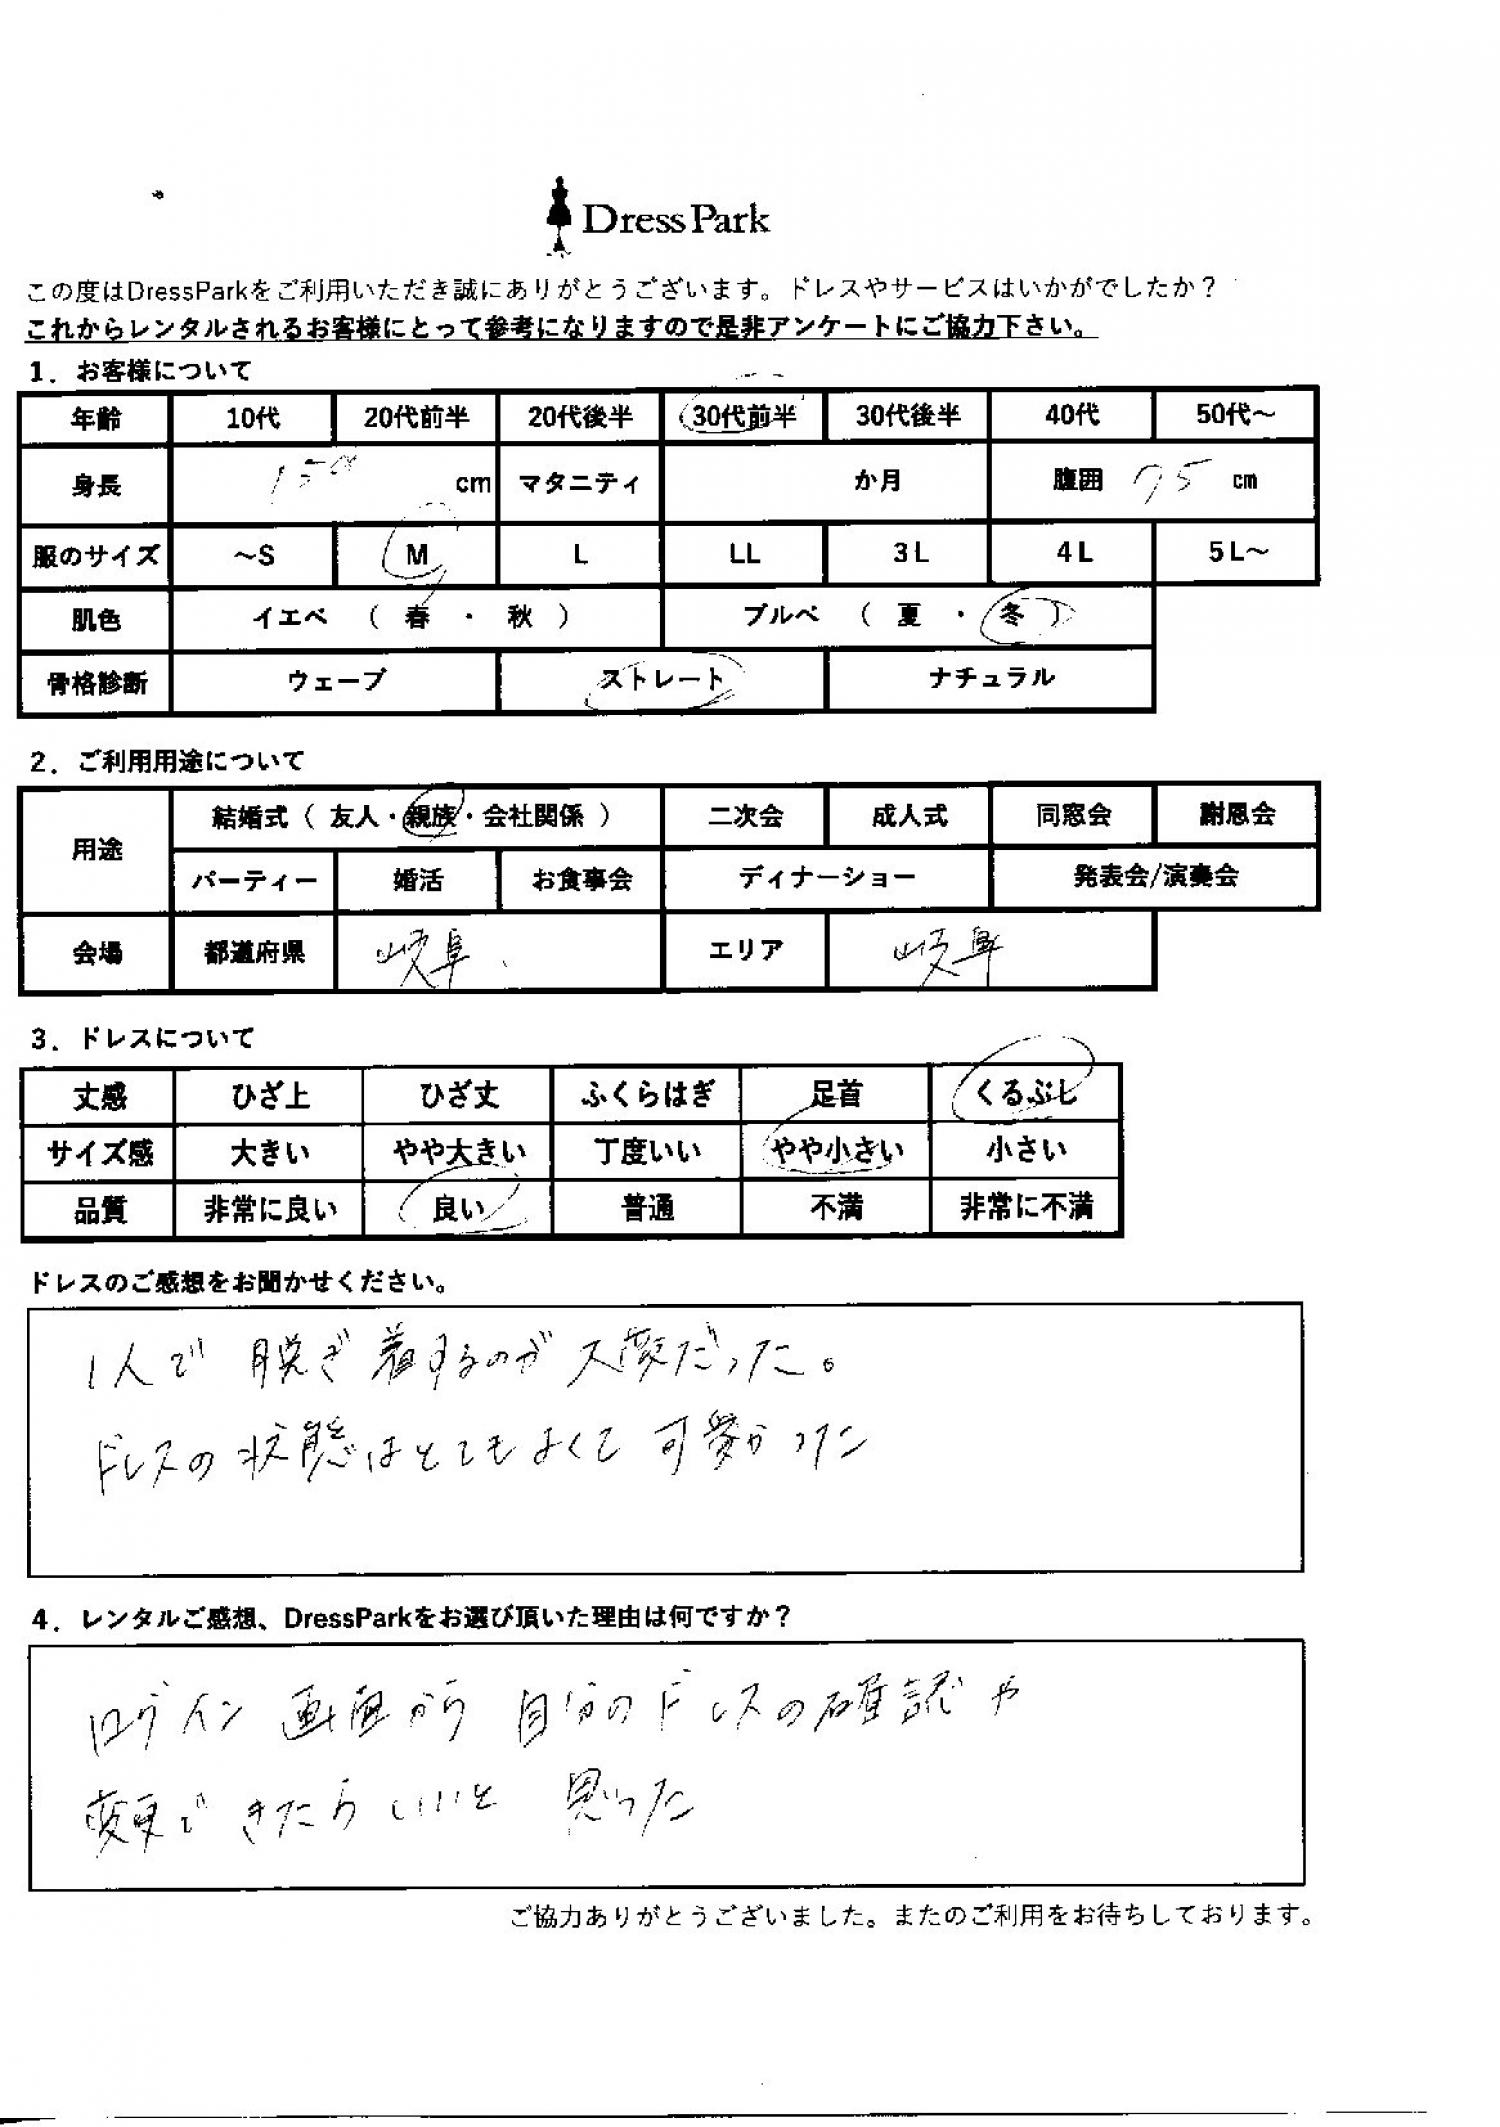 DressPark
この度はDressParkをご利用いただき誠にありがとうございます。ドレスやサービスはいかがでしたか？
これからレンタルされるお客様にとって参考になりますので是非アンケートにご協力下さい。
1．お客様について
年齢 10代 20代前半 20代後半 30代前半 30代後半 40代 50代～
身長 cm マタニティ か月 腹囲 75 cm
服のサイズ ～S M L LL 3L 4L 5L～
肌色 イエベ （ 春 ・ 秋 ） ブルベ （ 夏 ・ 冬 ）
骨格診断 ウェーブ ストレート ナチュラル
2．ご利用用途について
用途 結婚式（ 友人・親族・会社関係 ） 二次会 成人式 同窓会 謝恩会
パーティー 婚活 お食事会 ディナーショー 発表会/演奏会
会場 都道府県 岐阜 エリア 岐阜
3．ドレスについて
丈感 ひざ上 ひざ丈 ふくらはぎ 足首 くるぶし
サイズ感 大きい やや大きい 丁度いい やや小さい 小さい
品質 非常に良い 良い 普通 不満 非常に不満
ドレスのご感想をお聞かせください。
1人で脱ぎ着するのが大変だった。
ドレスの状態はとてもよくて可愛かった
4．レンタルご感想、DressParkをお選び頂いた理由は何ですか？
ログイン画面から自分のドレスの確認や
変更できたらいいと思った
ご協力ありがとうございました。またのご利用をお待ちしております。